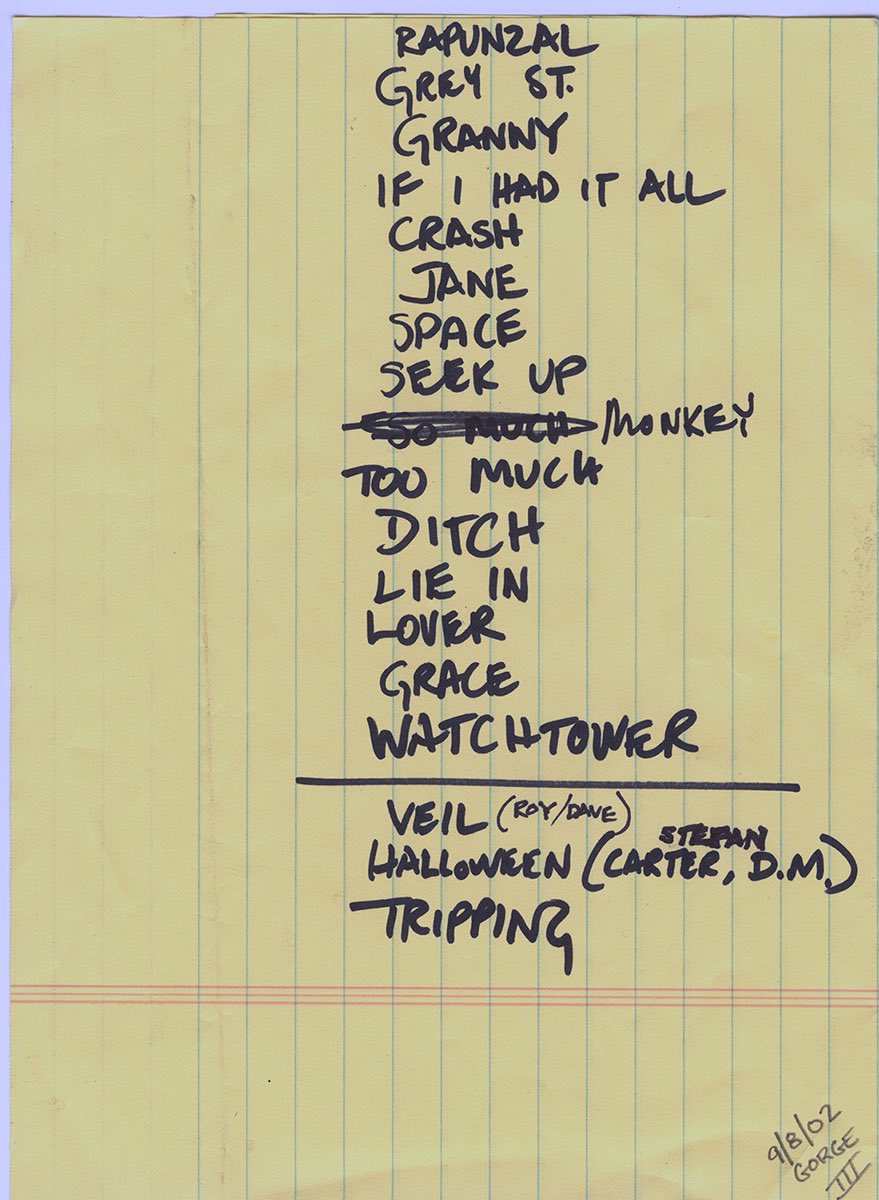 RAPUNZAL
GREY ST.
GRANNY
IF I HAD IT ALL
CRASH
JANE
SPACE
SEEK UP
SO MUCH /MONKEY
TOO MUCH
DITCH
LIE IN
LOVER
GRACE
WATCHTOWER
VEIL (ROY/DAVE)
STEFAN
HALLOWEEN (CARTER, D.M.)
TRIPPING
9/8/02
GORGE
III